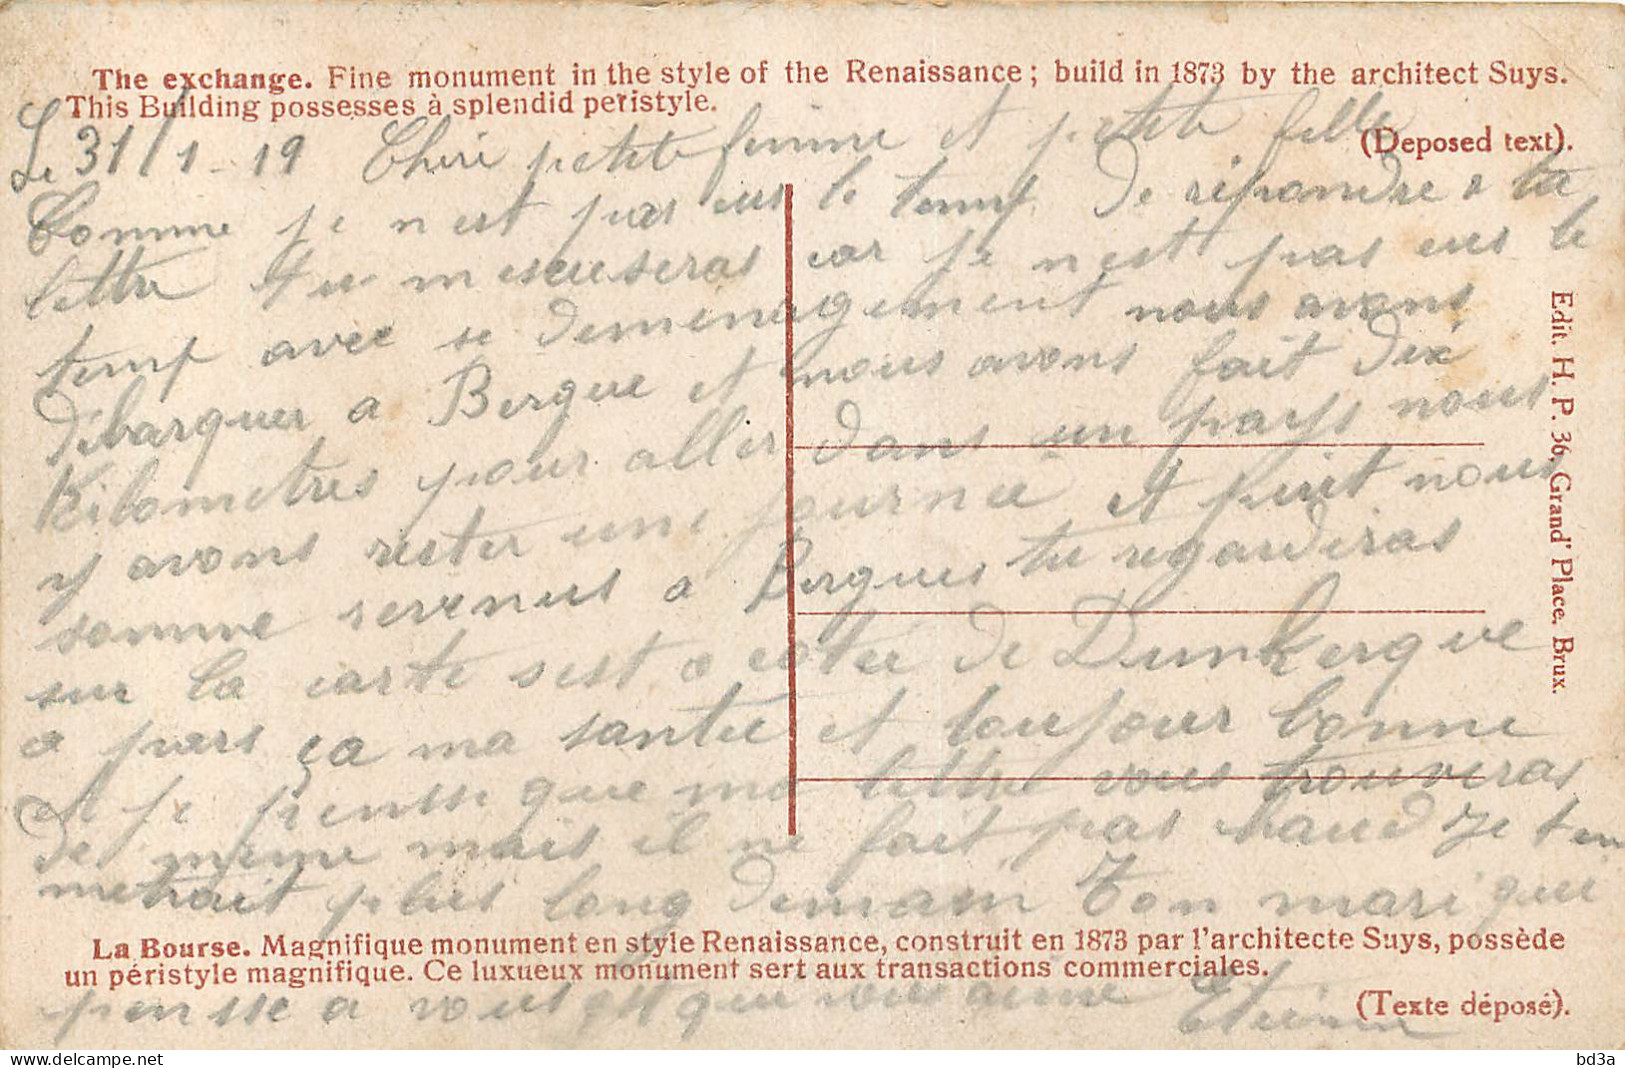 The exchange. Fine monument in the style of the Renaissance ; build in 1873 by the architect Suys.
This Building possesses à splendid peristyle.
(Deposed text).
Le 31/1-19 Cheri petite femme et petite fille
Comme je n est pas eus le temp De repondre a ta
lettre tu m escuseras car je n est pas eus le
temp avec se demenagement nous avons
débarquer a Bergue et nous avons fait dix
Kilometres pour aller dans un pays nous
y avons rester une journée et puit nous
somme revenus a Bergues tu regarderas
sur la carte s est a cotée de Dunkerque
a pars ça ma santée et toujour bonne
et je pensse que ma lettre vous trouveras
de meme mais il ne fait pas haud Je t en
metrait plus long demain Ton mari qui
pensse a vous et qui vous aime Etienne
La Bourse. Magnifique monument en style Renaissance, construit en 1873 par l'architecte Suys, possède
un péristyle magnifique. Ce luxueux monument sert aux transactions commerciales.
(Texte déposé).
Edit. H. P. 36, Grand' Place. Brux.
delcampe.net
bd3a